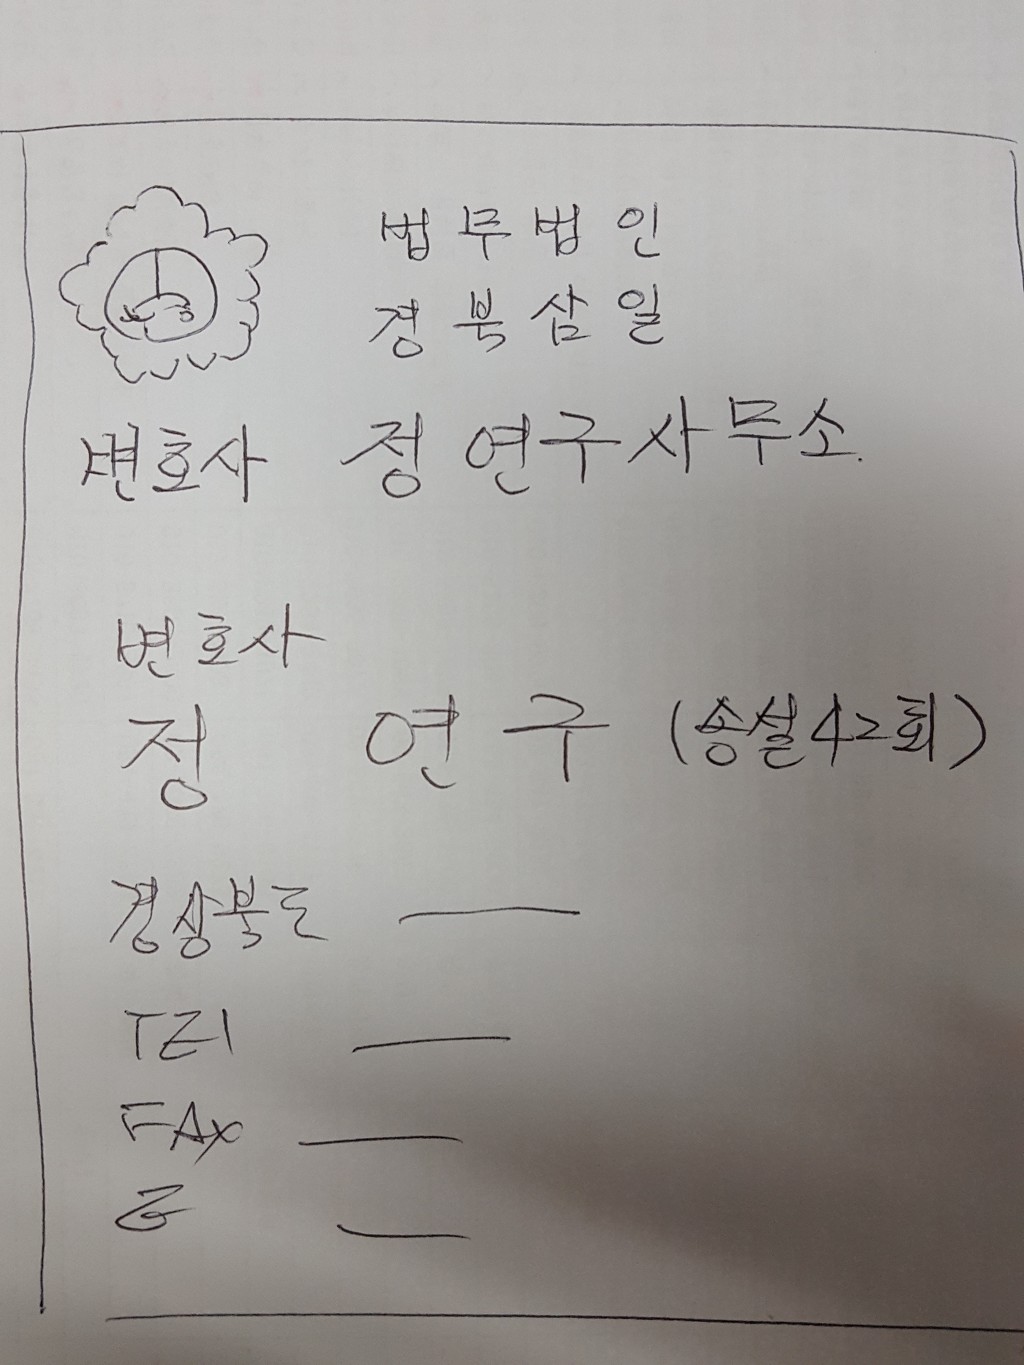 법무법인
경북삼일
변호사 정연구사무소.
변호사
정 연 구 (송설42회)
경상북도
TEl
FAX
E